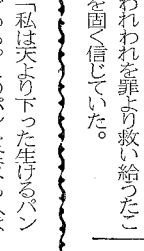 われわれを罪より救い給うたこ
を固く信じていた。
「私は天より下った生けるパン